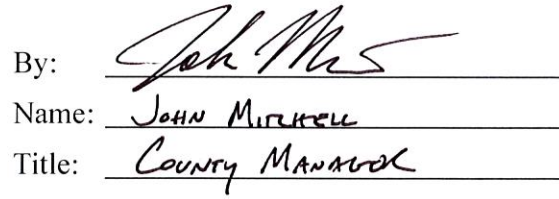 By: John M
Name: John Mitchell
Title: County Manager